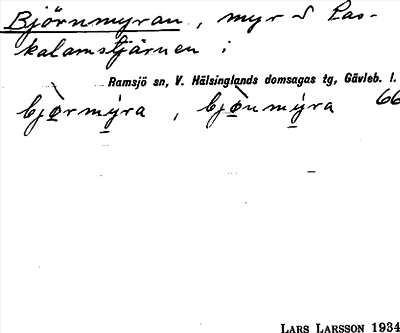 Björnmyran, myr S Las-
kalamstjärnen i
Ramsjö sn, V. Hälsinglands domsagas tg, Gävleb. l.
bjø̀rmy̱ra, bjø̀nmy̱ra 66
LARS LARSSON 1934